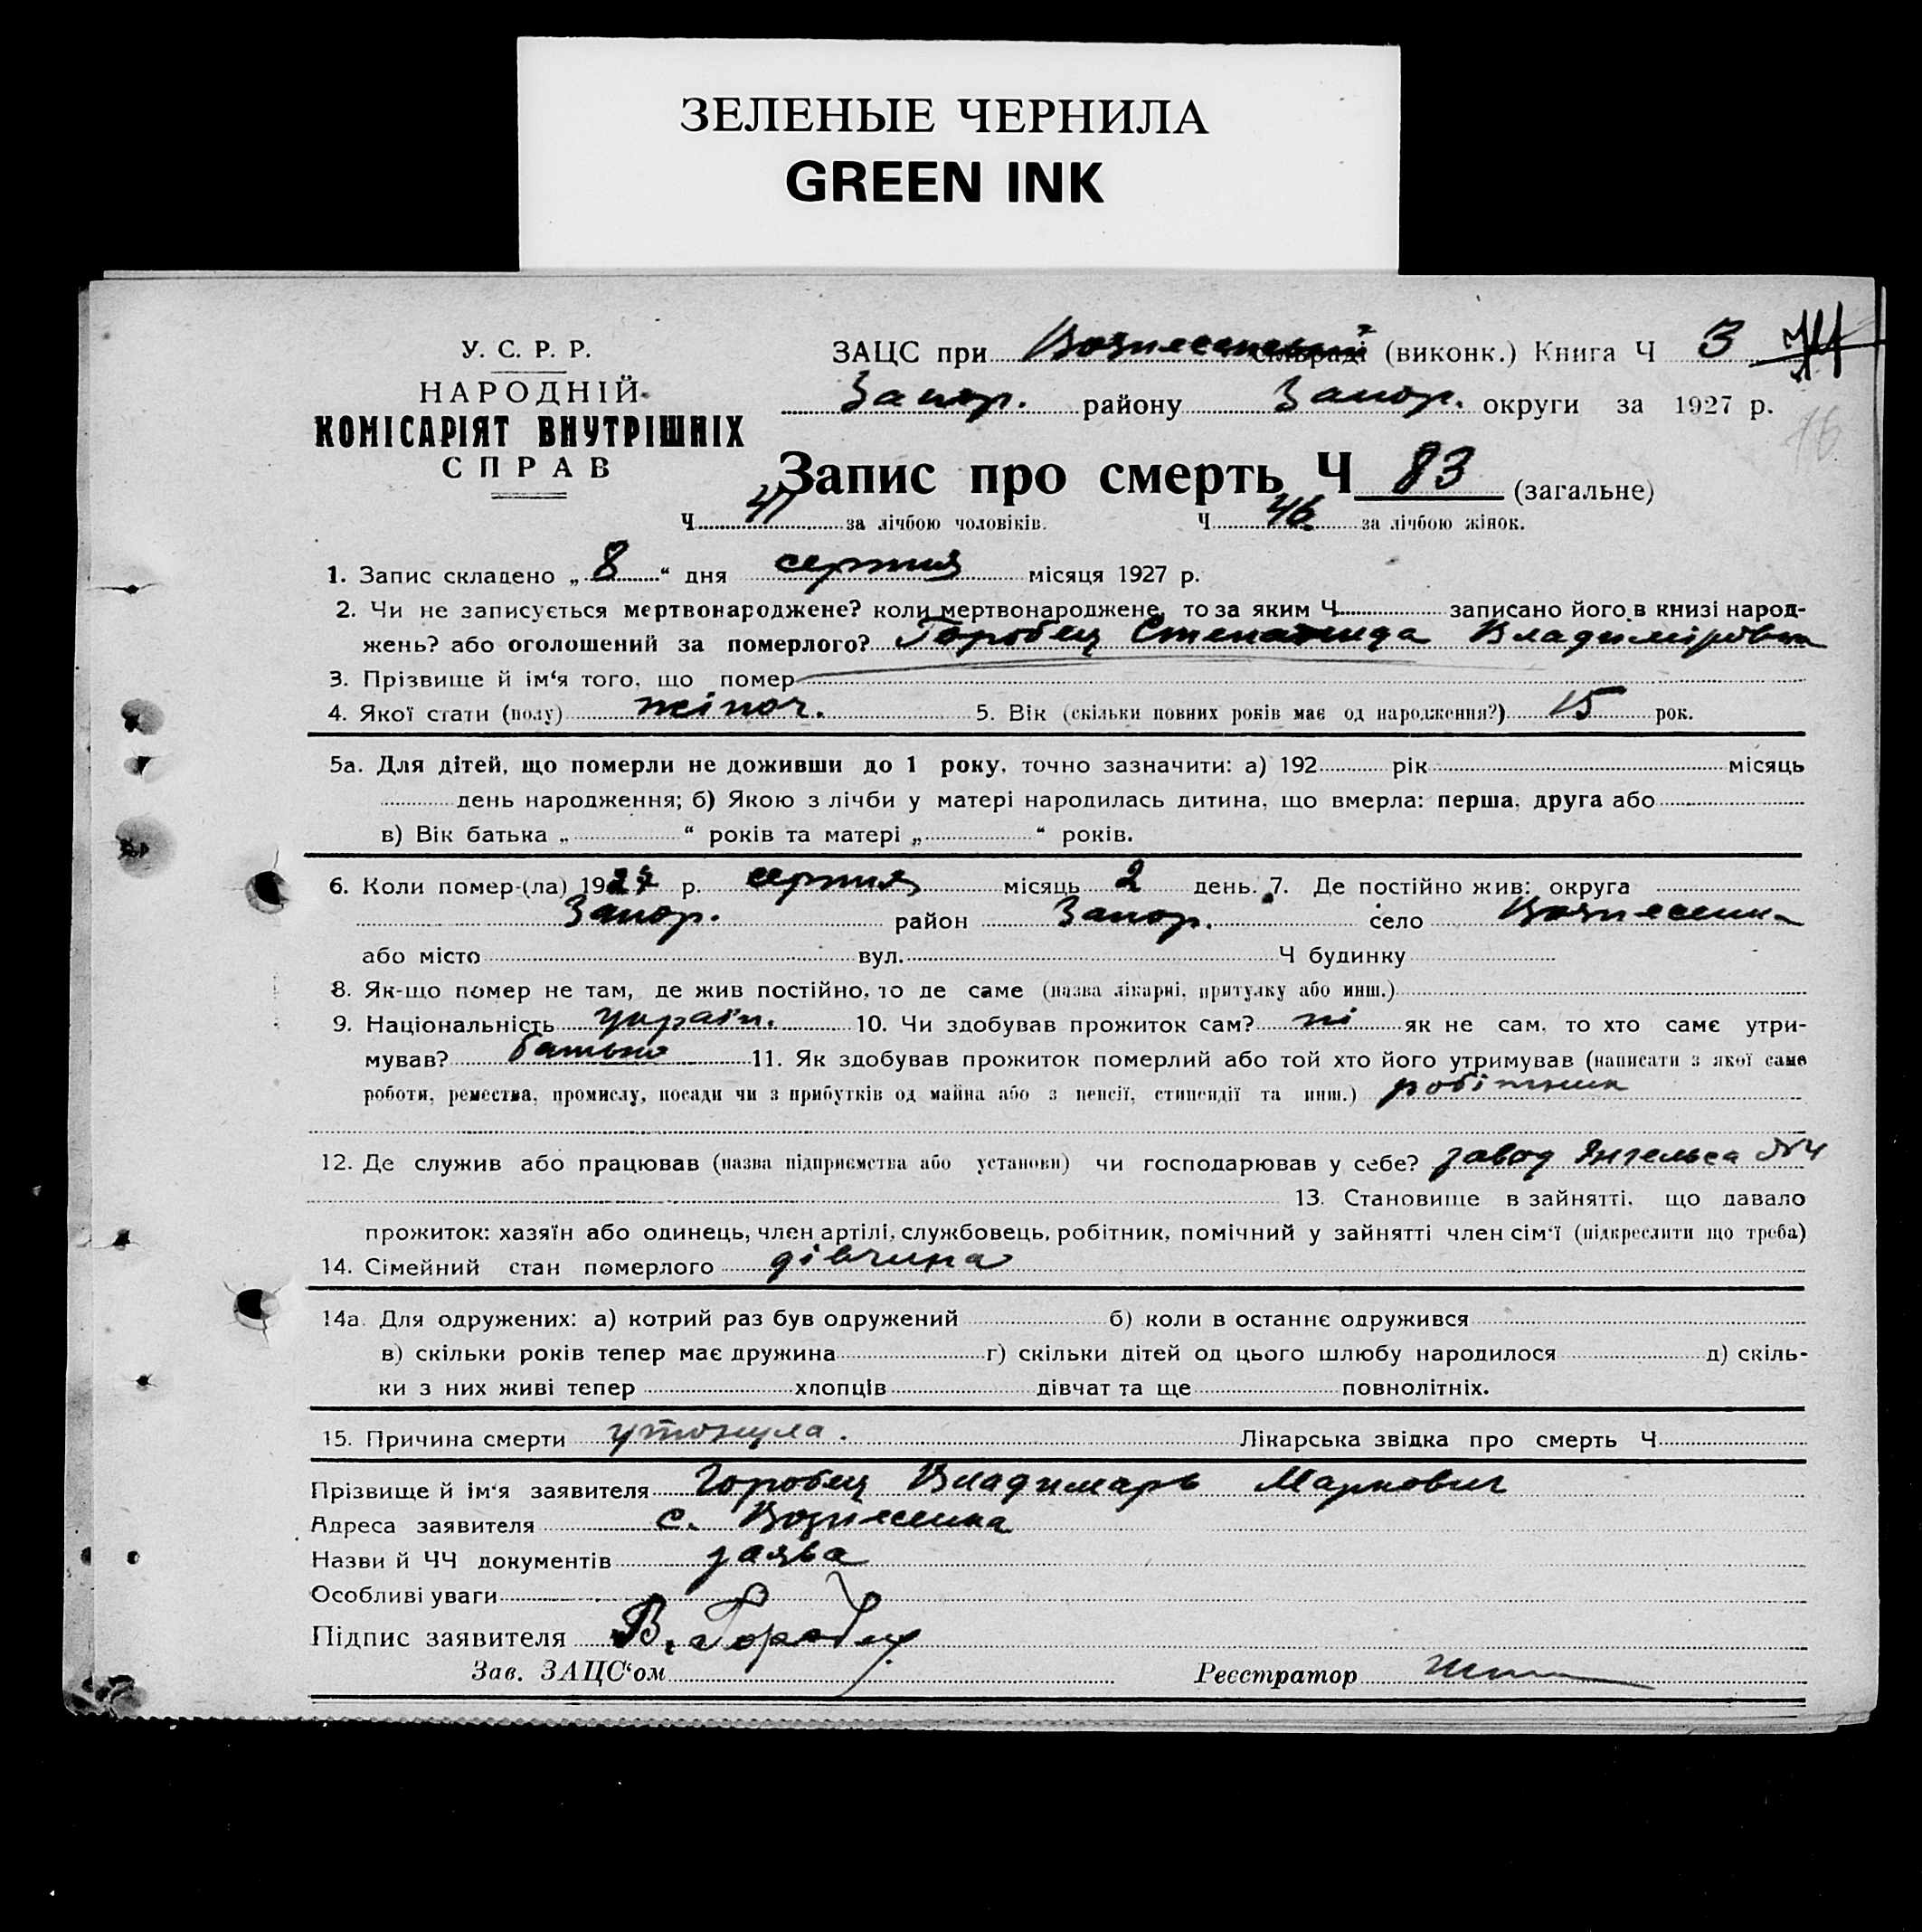 ЗЕЛЕНЫЕ ЧЕРНИЛА
GREEN INK
У. С. Р. Р.
НАРОДНІЙ
КОМІСАРІЯТ ВНУТРІШНІХ
СПРАВ
ЗАЦС при Вознесенській сільраді (виконк.) Книга Ч 3
Запор. району Запор. округи за 1927 р.
16
Запис про смерть Ч 83 (загальне)
Ч 41 за лічбою чоловіків. Ч 46 за лічбою жінок.
1. Запис складено „8“ дня серпня місяця 1927 р.
2. Чи не записується мертвонароджене? коли мертвонароджене, то за яким Ч записано його в книзі народ-
жень? або оголошений за померлого? Горобец Степанида Владиміровна
3. Прізвище й ім‘я того, що помер
4. Якої стати (полу) жіноч. 5. Вік (скільки повних років має од народження?) 15 рок.
5а. Для дітей, що померли не доживши до 1 року, точно зазначити: а) 192 рік місяць
день народження; б) Якою з лічби у матері народилась дитина, що вмерла: перша, друга або
в) Вік батька „ “ років та матері „ “ років.
6. Коли помер-(ла) 1927 р. серпня місяць 2 день. 7. Де постійно жив: округа
Запор. район Запор. село Вознесенка
або місто вул. Ч будинку
8. Як-що помер не там, де жив постійно, то де саме (назва лікарні, притулку або инш.)
9. Національність україн. 10. Чи здобував прожиток сам? ні як не сам, то хто саме утри-
мував? батько 11. Як здобував прожиток померлий або той хто його утримував (написати з якої саме
роботи, ремества, промислу, посади чи з прибутків од майна або з пенсії, стипендії та инш.) робітник
12. Де служив або працював (назва підприємства або установи) чи господарював у себе? завод Енгельса №4
13. Становище в зайнятті, що давало
прожиток: хазяїн або одинець, член артілі, службовець, робітник, помічний у зайнятті член сім‘ї (підкреслити що треба)
14. Сімейний стан померлого дівчина
14а. Для одружених: а) котрий раз був одружений б) коли в останнє одружився
в) скільки років тепер має дружина г) скільки дітей од цього шлюбу народилося д) скіль-
ки з них живі тепер хлопців дівчат та ще повнолітніх.
15. Причина смерти утонула. Лікарська звідка про смерть Ч
Прізвище й ім‘я заявителя Горобец Владимарь Маркович
Адреса заявителя с. Вознесенка
Назви й ЧЧ документів заява
Особливі уваги
Підпис заявителя В. Горобец
Зав. ЗАЦС‘ом Реєстратор